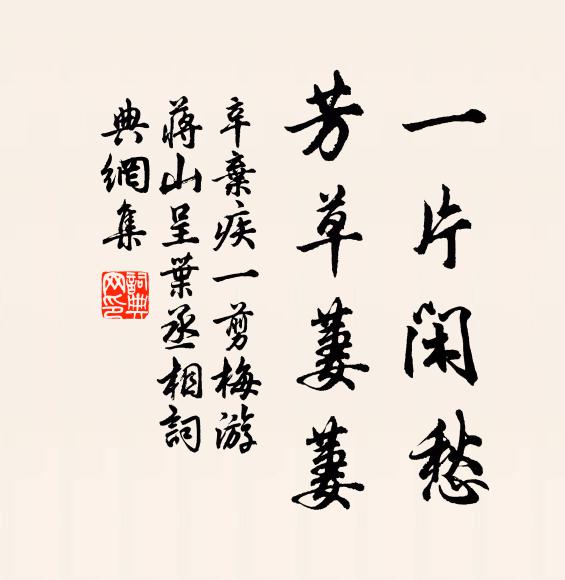 一片閑愁
芳草萋萋
辛棄疾一剪梅游
蔣山呈葉丞相詞
典網集
詞典
网印